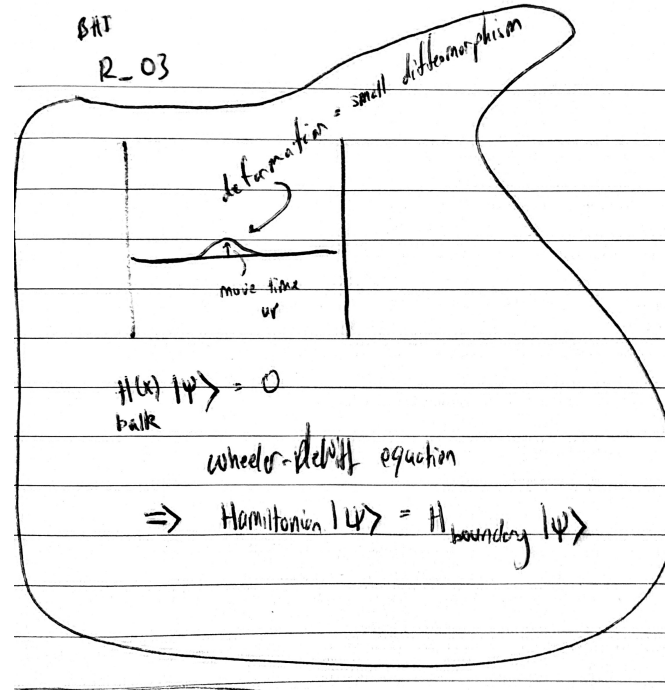 BHI
R_03
deformation = small diffeomorphism
move time
up
H(x) |Ψ⟩ = 0
bulk
wheeler-dewitt equation
⇒ Hamiltonian |Ψ⟩ = H_boundary |Ψ⟩